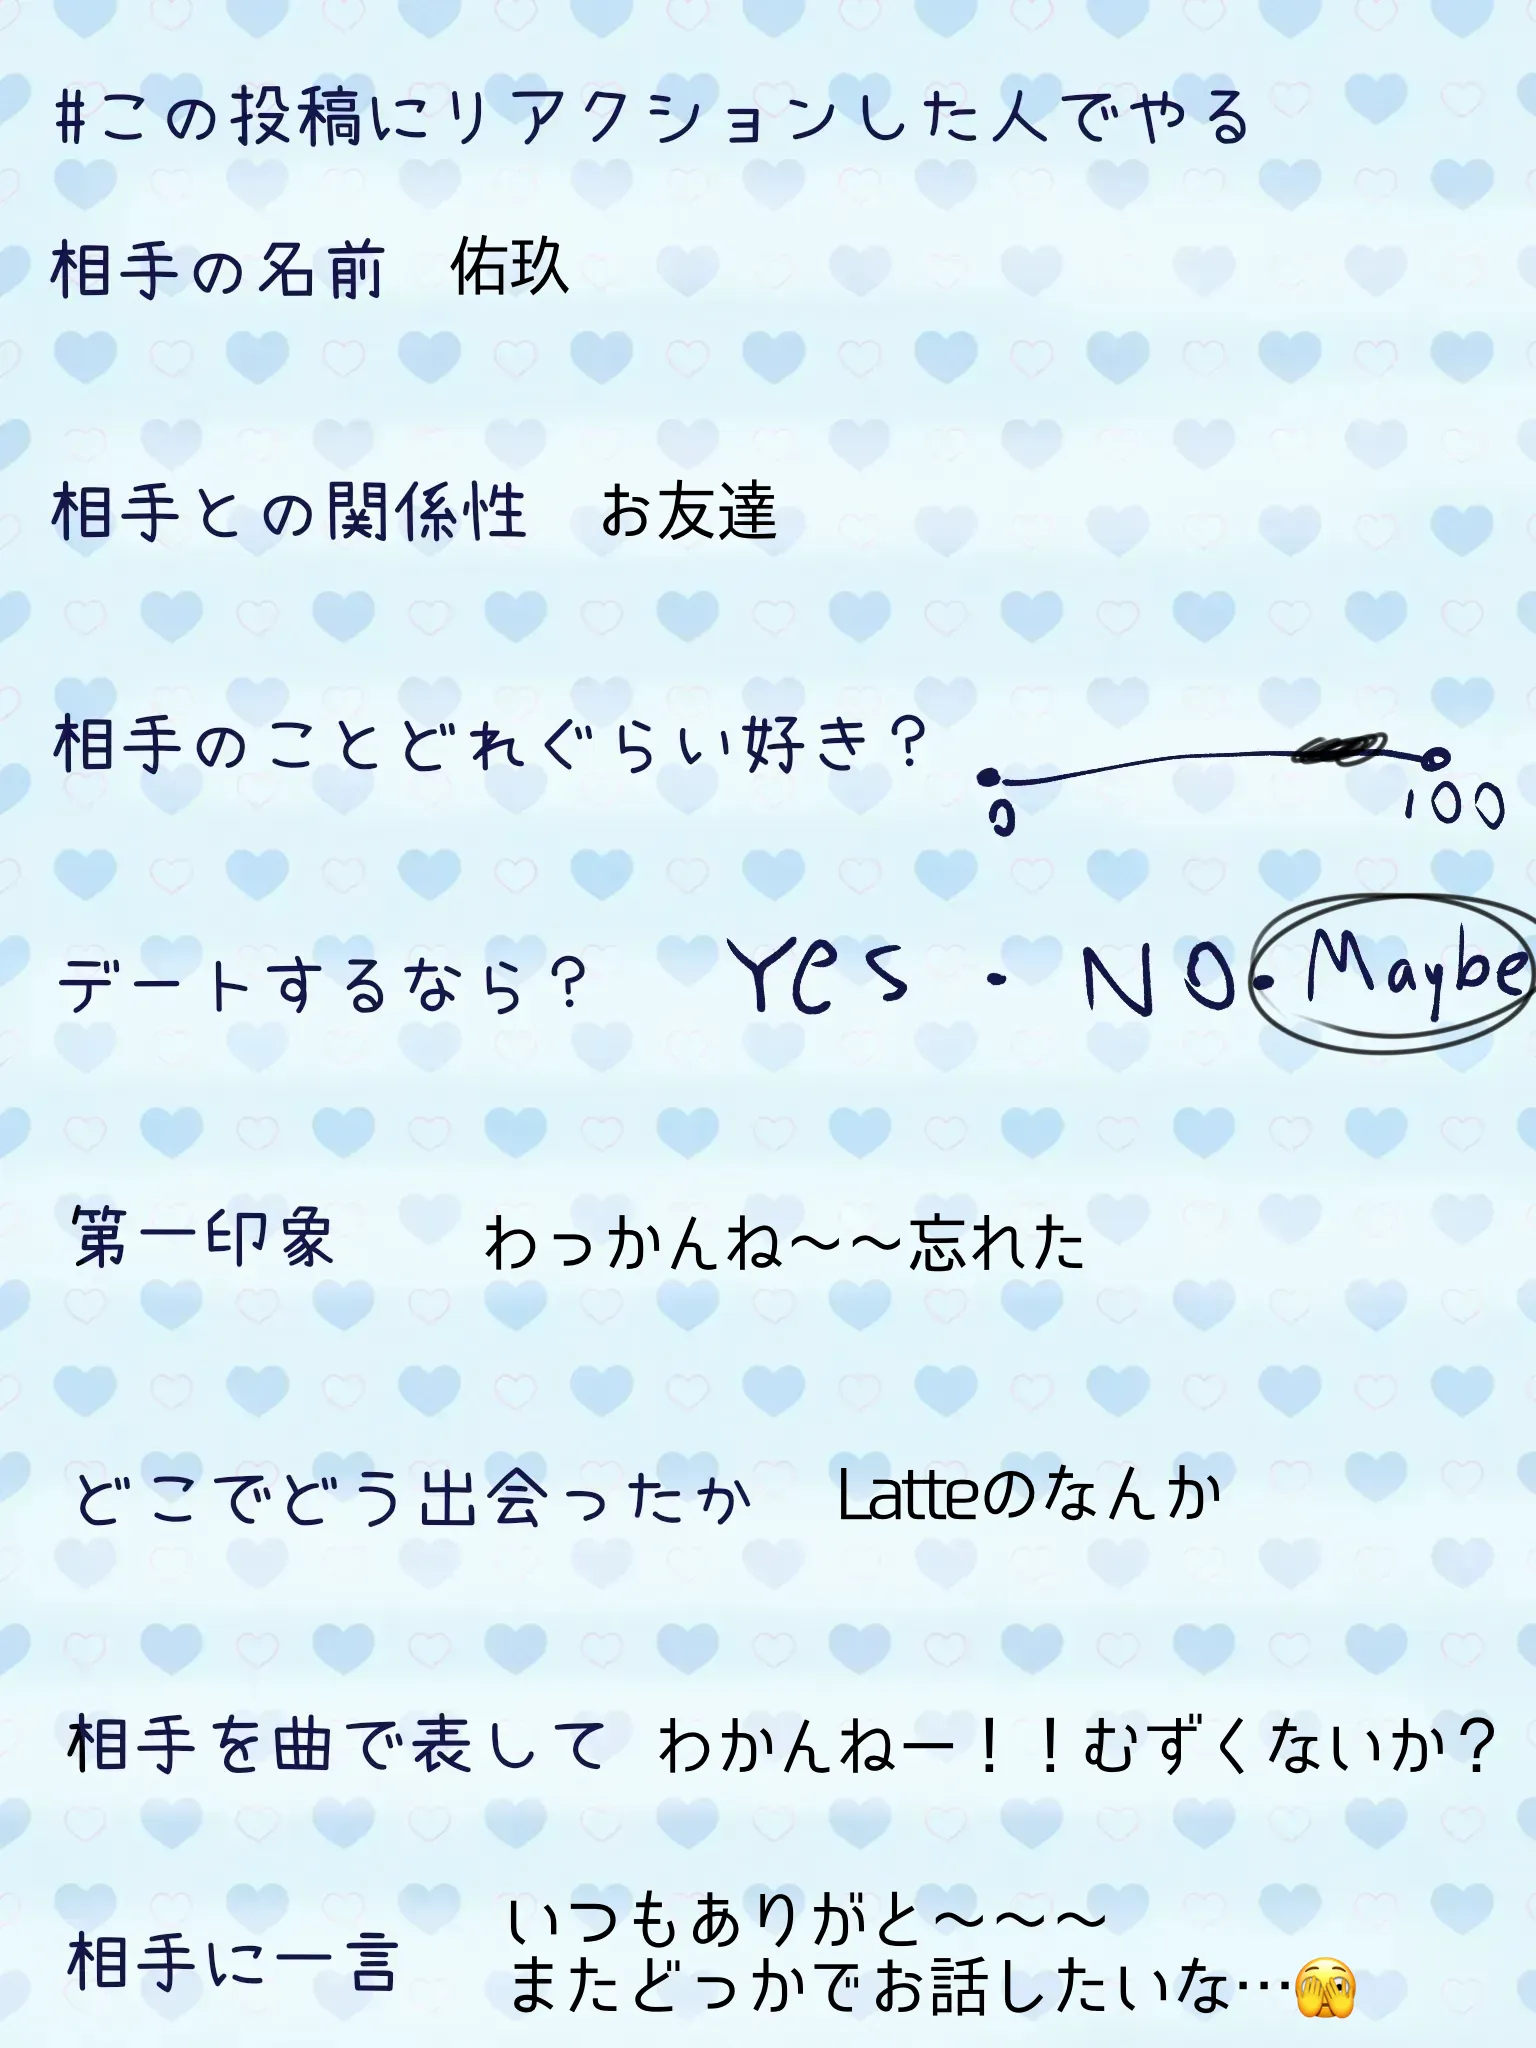 #この投稿にリアクションした人でやる
相手の名前 佑玖
相手との関係性 お友達
相手のことどれぐらい好き?
0 100
デートするなら? Yes・NO・Maybe
第一印象 わっかんね～～忘れた
どこでどう出会ったか Latteのなんか
相手を曲で表して わかんねー！！むずくないか?
相手に一言 いつもありがと～～～
またどっかでお話したいな…🫣